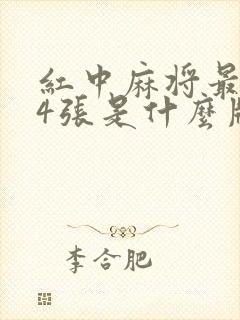 紅中麻将最
4張是什麼牌
李合肥